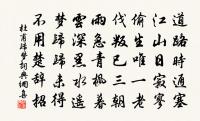 道路時通塞
江山日寂寥
偷生唯一老
伐叛已三朝
雨急青楓暮
雲深黑水遙
夢歸歸未得
不用楚辭招
杜甫歸夢詞典網集